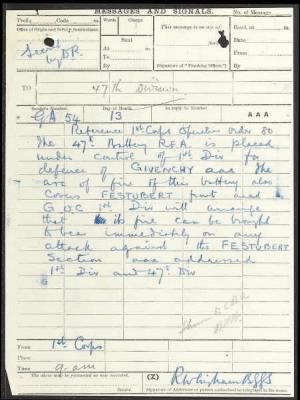 MESSAGES AND SIGNALS.
No. of Message
Prefix Code m.
Words Charge
This message is on a/c of:
Recd. at m.
Office of Origin and Service Instructions.
Sent
Date
Secret
At m.
From
by D.R.
To
By
By
(Signature of "Franking Officer.")
TO 47th Division
Sender's Number Day of Month In reply to Number AAA
GA 54 13
Reference 1st Corps Operation order 80
The 47th Battery R.F.A. is placed
under control of 1st Div for
defence of GIVENCHY aaa The
arc of fire of this battery also
covers FESTUBERT front and
G.O.C 1st Div will arrange
that its fire can be brought
to bear immediately on any
attack against the FESTUBERT
Section aaa addressed
1st Div and 47th Div
From 1st Corps
Place
Time 9. am
The above may be forwarded as now corrected.
(Z)
Signature of Addressor or person authorised to telegraph in his name.